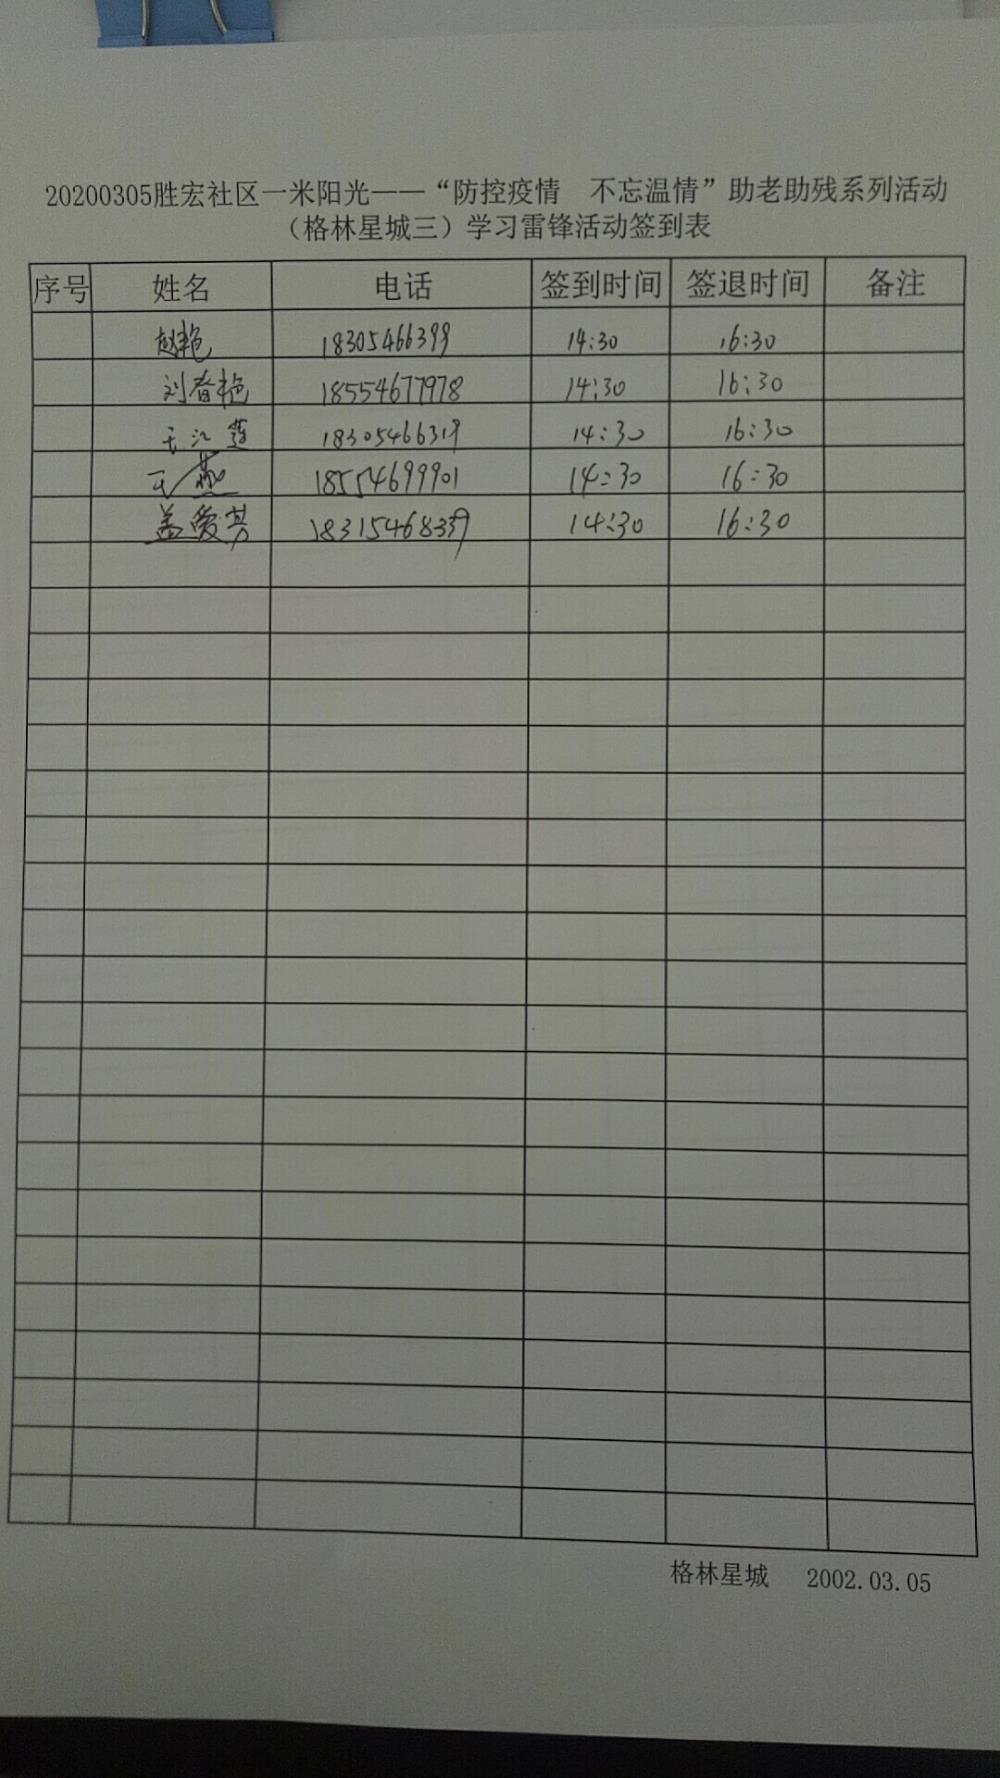 20200305胜宏社区一米阳光——“防控疫情　不忘温情”助老助残系列活动
（格林星城三）学习雷锋活动签到表
序号 姓名 电话 签到时间 签退时间 备注
赵艳 18305466399 14:30 16:30
刘春艳 18554677978 14:30 16:30
王江莲 18305466319 14:30 16:30
王燕 18554699901 14:30 16:30
盖爱芳 18315468339 14:30 16:30
格林星城 2002.03.05